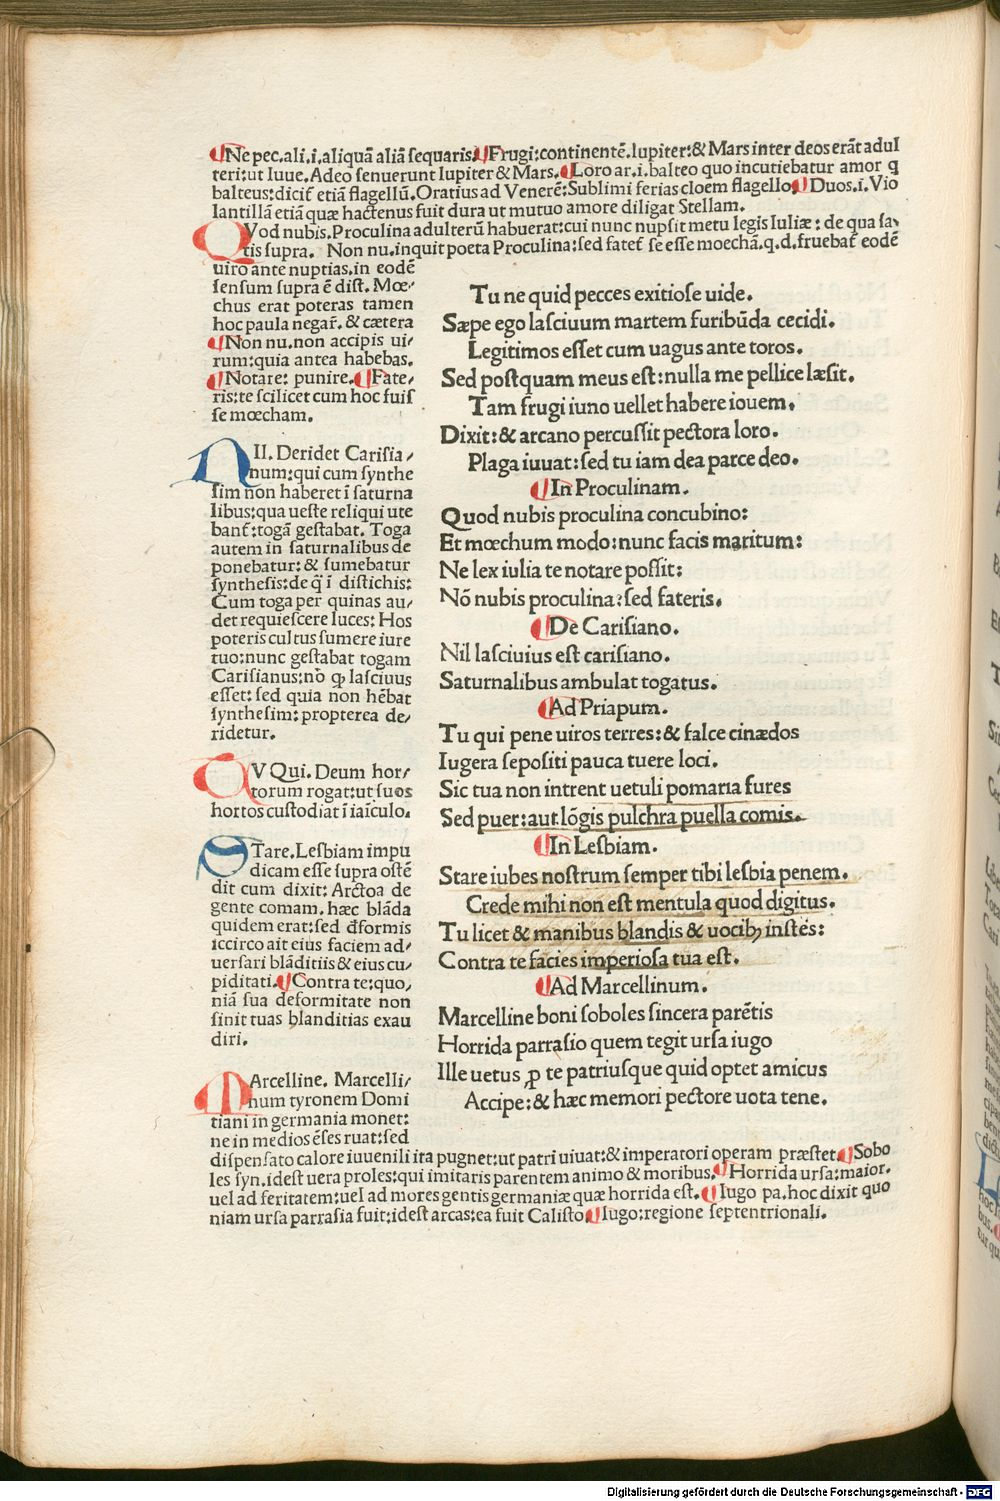 ¶Ne pec.ali.i.aliquā aliā sequaris.¶Frugi:continentē.Iupiter:& Mars inter deos erāt adul
teri:ut Iuue.Adeo senuerunt Iupiter & Mars.¶Loro ar.i.balteo quo incutiebatur amor q
balteus:dicit̄ etiā flagellū.Oratius ad Venerē:Sublimi ferias cloem flagello¶Duos.i.Vio
lantillā etiā quæ hactenus fuit dura ut mutuo amore diligat Stellam.
QVod nubis.Proculina adulterū habuerat:cui nunc nupsit metu legis Iuliæ: de qua sa-
tis supra. Non nu.inquit poeta Proculina:sed fatet̄ se esse moechā.q.d.fruebat̄ eodē
uiro ante nuptias.in eodē
sensum supra ē dist. Mœ-
chus erat poteras tamen
hoc paula negar̄.& cætera
¶Non nu.non accipis ui-
rum:quia antea habebas.
¶Notare: punire.¶Fate-
ris:te scilicet cum hoc fuis
se mœcham.
NII. Deridet Carisia-
num:qui cum synthe
sim non haberet ī saturna
libus:qua ueste reliqui ute
bant̄:togā gestabat. Toga
autem in saturnalibus de
ponebatur:& sumebatur
synthesis:de q̄ ī distichis:
Cum toga per quinas au-
det requiescere luces: Hos
poteris cultus sumere iure
tuo:nunc gestabat togam
Carisianus:nō ꝙ lasciuus
esset: sed quia non hēbat
synthesim: propterea de-
ridetur.
TV Qui. Deum hor-
torum rogat:ut suos
hortos custodiat ī iaīculo.
STare.Lesbiam impu
dicam esse supra ostē
dit cum dixit: Arctoa de
gente comam. hæc blāda
quidem erat:sed d̄formis
iccirco ait eius faciem ad-
uersari blāditiis & eius cu-
piditati.¶Contra te:quo-
niā sua deformitate non
sinit tuas blanditias exau
diri.
MArcelline. Marcelli-
num tyronem Domi
tiani in germania monet:
ne in medios ēses ruat:sed
Tu ne quid pecces exitiose uide.
Sæpe ego lasciuum martem furibūda cecidi.
Legitimos esset cum uagus ante toros.
Sed postquam meus est:nulla me pellice læsit.
Tam frugi iuno uellet habere iouem.
Dixit:& arcano percussit pectora loro.
Plaga iuuat:sed tu iam dea parce deo.
¶In Proculinam.
Quod nubis proculina concubino:
Et mœchum modo:nunc facis maritum:
Ne lex iulia te notare possit:
Nō nubis proculina:sed fateris.
¶De Carisiano.
Nil lasciuius est carisiano.
Saturnalibus ambulat togatus.
¶Ad Priapum.
Tu qui pene uiros terres:& falce cinædos
Iugera sepositi pauca tuere loci.
Sic tua non intrent uetuli pomaria fures
Sed puer:aut lōgis pulchra puella comis.
¶In Lesbiam.
Stare iubes nostrum semper tibi lesbia penem.
Crede mihi non est mentula quod digitus.
Tu licet & manibus blandis & uocibꝫ instēs:
Contra te facies imperiosa tua est.
¶Ad Marcellinum.
Marcelline boni soboles sincera parētis
Horrida parrasio quem tegit ursa iugo
Ille uetus ꝓ te patriusque quid optet amicus
Accipe:& hæc memori pectore uota tene.
dispensato calore iuuenili ita pugnet:ut patri uiuat:& imperatori operam præstet.¶Sobo
les syn.idest uera proles:qui imitaris parentem animo & moribus.¶Horrida ursa:maior.
uel ad feritatem:uel ad mores gentis germaniæ quæ horrida est.¶Iugo pa.hoc dixit quo
niam ursa parrasia fuit:idest arcas:ea fuit Calisto¶Iugo:regione septentrionali.
Digitalisierung gefördert durch die Deutsche Forschungsgemeinschaft - DFG